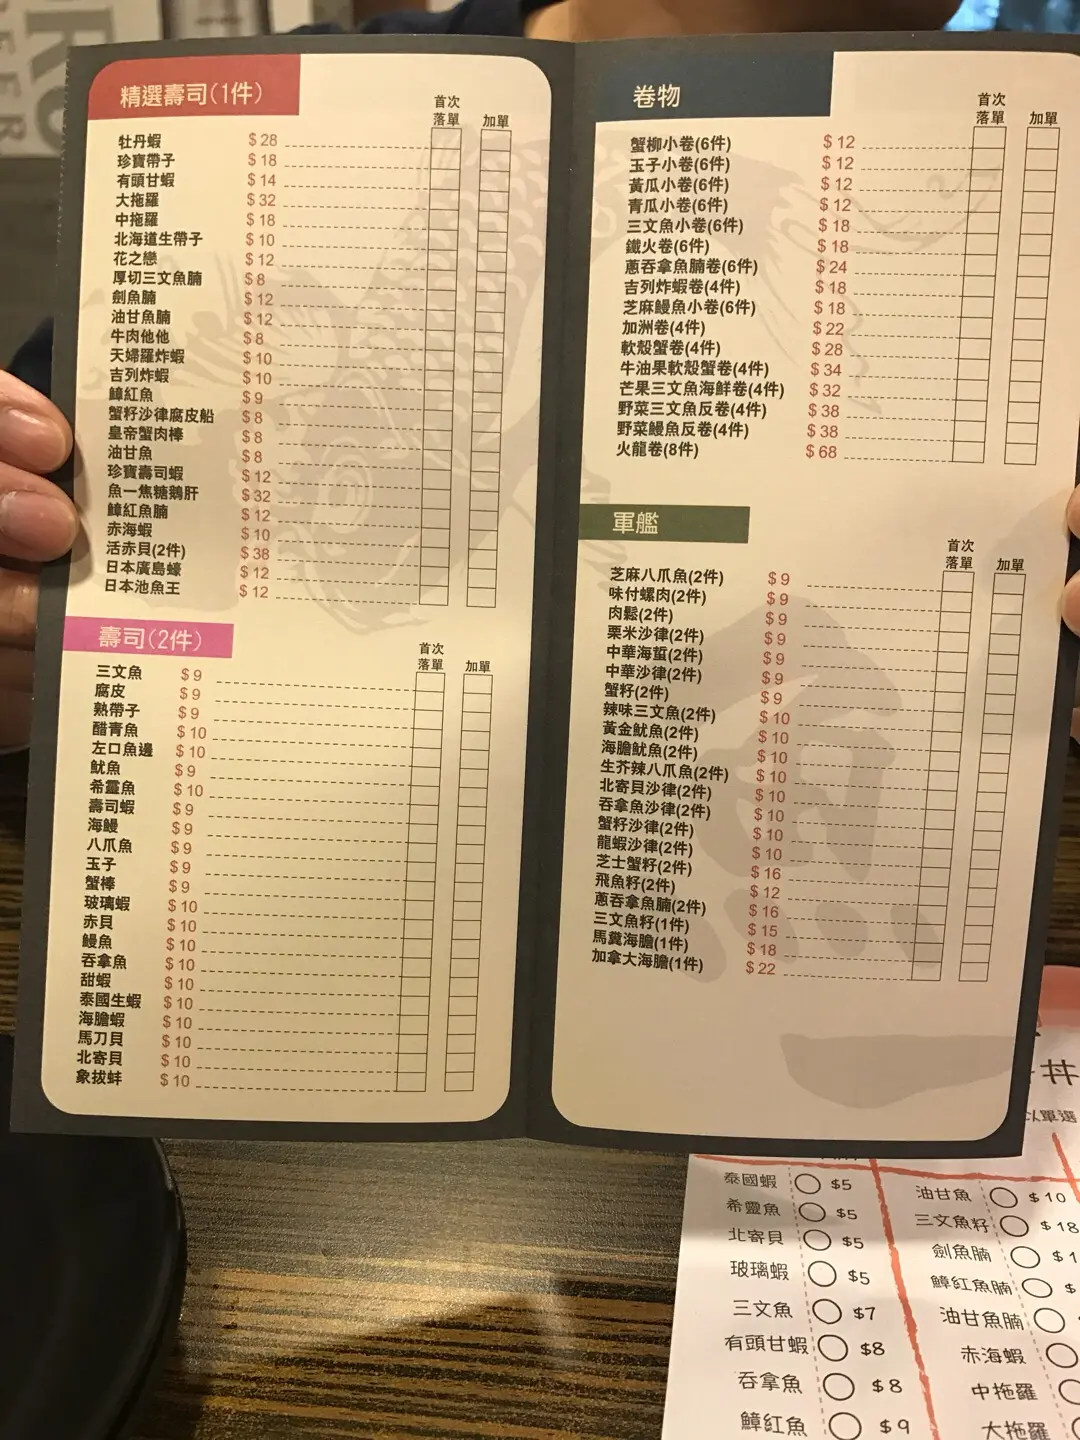 精選壽司(1件)
首次
落單
加單
牡丹蝦 $28
珍寶帶子 $18
有頭甘蝦 $14
大拖羅 $32
中拖羅 $18
北海道生帶子 $10
花之戀 $12
厚切三文魚腩 $8
劍魚腩 $12
油甘魚腩 $12
牛肉他他 $8
天婦羅炸蝦 $10
吉列炸蝦 $10
鱆紅魚 $9
蟹籽沙律腐皮船 $8
皇帝蟹肉棒 $8
油甘魚 $8
珍寶壽司蝦 $12
魚一焦糖鵝肝 $32
鱆紅魚腩 $12
赤海蝦 $10
活赤貝(2件) $38
日本廣島蠔 $12
日本池魚王 $12
壽司(2件)
首次
落單
加單
三文魚 $9
腐皮 $9
熟帶子 $9
醋青魚 $10
左口魚邊 $10
魷魚 $9
希靈魚 $10
壽司蝦 $9
海鰻 $9
八爪魚 $9
玉子 $9
蟹棒 $9
玻璃蝦 $10
赤貝 $10
鰻魚 $10
吞拿魚 $10
甜蝦 $10
泰國生蝦 $10
海膽蝦 $10
馬刀貝 $10
北寄貝 $10
象拔蚌 $10
卷物
首次
落單
加單
蟹柳小卷(6件) $12
玉子小卷(6件) $12
黃瓜小卷(6件) $12
青瓜小卷(6件) $12
三文魚小卷(6件) $18
鐵火卷(6件) $18
蔥吞拿魚腩卷(6件) $24
吉列炸蝦卷(4件) $18
芝麻鰻魚小卷(6件) $18
加洲卷(4件) $22
軟殼蟹卷(4件) $28
牛油果軟殼蟹卷(4件) $34
芒果三文魚海鮮卷(4件) $32
野菜三文魚反卷(4件) $38
野菜鰻魚反卷(4件) $38
火龍卷(8件) $68
軍艦
首次
落單
加單
芝麻八爪魚(2件) $9
味付螺肉(2件) $9
肉鬆(2件) $9
栗米沙律(2件) $9
中華海蜇(2件) $9
中華沙律(2件) $9
蟹籽(2件) $9
辣味三文魚(2件) $10
黃金魷魚(2件) $10
海膽魷魚(2件) $10
生芥辣八爪魚(2件) $10
北寄貝沙律(2件) $10
吞拿魚沙律(2件) $10
蟹籽沙律(2件) $10
龍蝦沙律(2件) $10
芝士蟹籽(2件) $16
飛魚籽(2件) $12
蔥吞拿魚腩(2件) $16
三文魚籽(1件) $15
馬糞海膽(1件) $18
加拿大海膽(1件) $22
丼
以單選
泰國蝦 $5
希靈魚 $5
北寄貝 $5
玻璃蝦 $5
三文魚 $7
有頭甘蝦 $8
吞拿魚 $8
鱆紅魚 $9
油甘魚 $10
三文魚籽 $18
劍魚腩 $1
鱆紅魚腩 $
油甘魚腩
赤海蝦
中拖羅
大拖羅